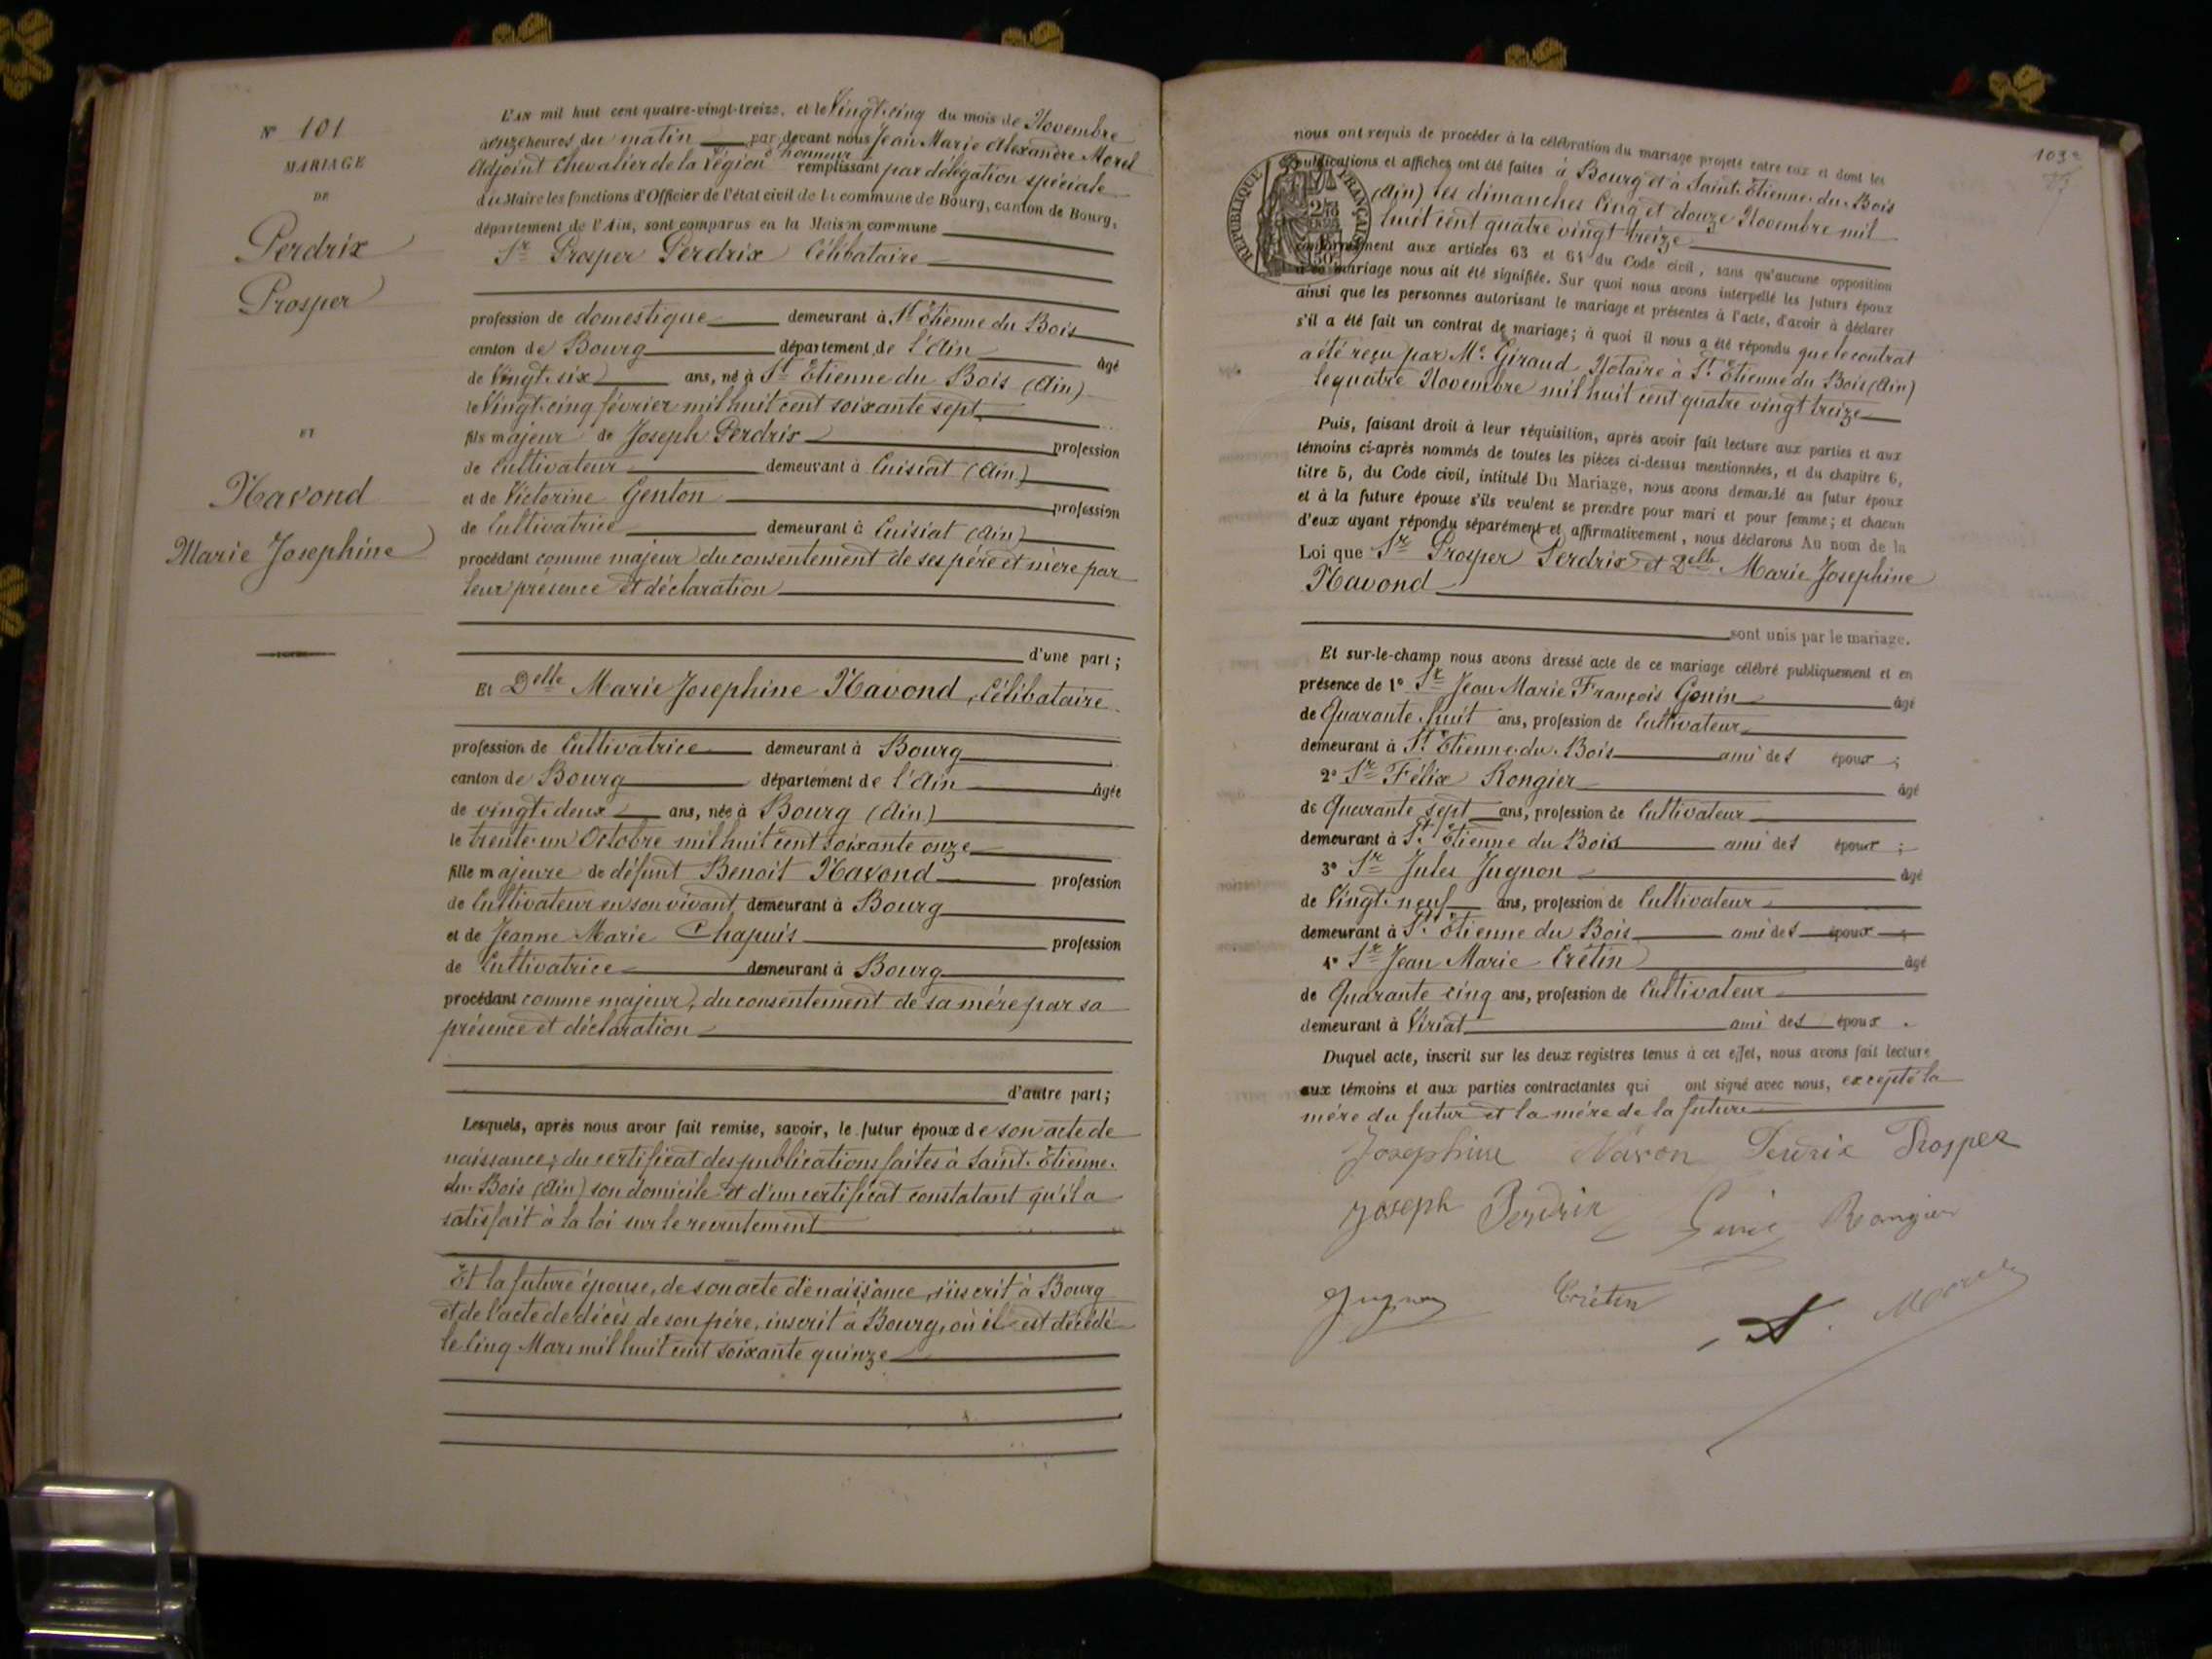 N° 101
MARIAGE
DE
Perdrix
Prosper
ET
Navond
Marie Josephine
L'AN mil huit cent quatre-vingt-treize, et le Vingt-cinq du mois de Novembre
à onze heures du matin par devant nous Jean Marie Alexandre Morel
Adjoint Chevalier de la Légion d'honneur remplissant par délégation spéciale
du Maire les fonctions d'Officier de l'état civil de la commune de Bourg, canton de Bourg,
département de l'Ain, sont comparus en la Maison commune
Sr Prosper Perdrix Célibataire
profession de domestique demeurant à St Etienne du Bois
canton de Bourg département de l'Ain âgé
de Vingt-six ans, né à St Etienne du Bois (Ain)
le Vingt-cinq février mil huit cent soixante sept
fils majeur de Joseph Perdrix profession
de Cultivateur demeurant à Cuisiat (Ain)
et de Victorine Genton profession
de Cultivatrice demeurant à Cuisiat (Ain)
procédant comme majeur du consentement de ses père et mère par
leur présence et déclaration
d'une part;
Et Delle Marie Josephine Navond, Célibataire
profession de Cultivatrice demeurant à Bourg
canton de Bourg département de l'Ain âgée
de vingt-deux ans, née à Bourg (Ain)
le trente-un Octobre mil huit cent soixante onze
fille majeure de défunt Benoit Navond profession
de Cultivateur en son vivant demeurant à Bourg
et de Jeanne Marie Chapuis profession
de Cultivatrice demeurant à Bourg
procédant comme majeur, du consentement de sa mère par sa
présence et déclaration
d'autre part;
Lesquels, après nous avoir fait remise, savoir, le futur époux de son acte de
naissance; du certificat des publications faites à Saint-Etienne-
du-Bois (Ain) son domicile et d'un certificat constatant qu'il a
satisfait à la loi sur le recrutement
Et la future épouse, de son acte de naissance, inscrit à Bourg
et de l'acte de décès de son père, inscrit à Bourg, où il est décédé
le cinq Mars mil huit cent soixante quinze
103e
nous ont requis de procéder à la célébration du mariage projeté entre eux et dont les
publications et affiches ont été faites à Bourg et à Saint-Etienne-du-Bois
(Ain) les dimanches Cinq et douze Novembre mil
huit cent quatre vingt treize
REPUBLIQUE FRANÇAISE
conformément aux articles 63 et 64 du Code civil, sans qu'aucune opposition
à ce mariage nous ait été signifiée. Sur quoi nous avons interpellé les futurs époux
ainsi que les personnes autorisant le mariage et présentes à l'acte, d'avoir à déclarer
s'il a été fait un contrat de mariage; à quoi il nous a été répondu que le contrat
a été reçu par Me Giraud, Notaire à St Etienne du Bois (Ain)
le quatre Novembre mil huit cent quatre vingt treize
Puis, faisant droit à leur réquisition, après avoir fait lecture aux parties et aux
témoins ci-après nommés de toutes les pièces ci-dessus mentionnées, et du chapitre 6,
titre 5, du Code civil, intitulé Du Mariage, nous avons demandé au futur époux
et à la future épouse s'ils veulent se prendre pour mari et pour femme; et chacun
d'eux ayant répondu séparément et affirmativement, nous déclarons Au nom de la
Loi que Sr Prosper Perdrix et Delle Marie Josephine
Navond
sont unis par le mariage.
Et sur-le-champ nous avons dressé acte de ce mariage célébré publiquement et en
présence de 1° Sr Jean Marie François Gonin âgé
de Quarante huit ans, profession de Cultivateur
demeurant à St Etienne-du-Bois ami des époux ;
2° Sr Félix Rongier âgé
de Quarante sept ans, profession de Cultivateur
demeurant à St Etienne du Bois ami des époux ;
3° Sr Jules Jugnon âgé
de Vingt-neuf ans, profession de Cultivateur
demeurant à St Etienne du Bois ami des époux ;
4° Sr Jean Marie Crétin âgé
de Quarante cinq ans, profession de Cultivateur
demeurant à Viriat ami des époux .
Duquel acte, inscrit sur les deux registres tenus à cet effet, nous avons fait lecture
aux témoins et aux parties contractantes qui ont signé avec nous, excepté la
mère du futur et la mère de la future
Josephine Navon Perdrix Prosper
Joseph Perdrix Rongier
Jugnon Crétin A. Morel